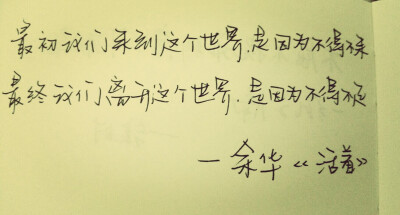 最初我们来到这个世界,是因为不得不来
最终我们离开这个世界,是因为不得不走
— 余华《活着》